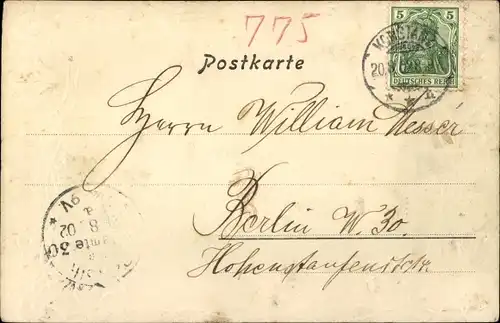 775
5
DEUTSCHES REICH
KONSTANZ
20.
* * *
Postkarte
Herrn William Messer
Berlin W. 30.
Hohenstaufenstr.
9V
*
8 02
amte 30